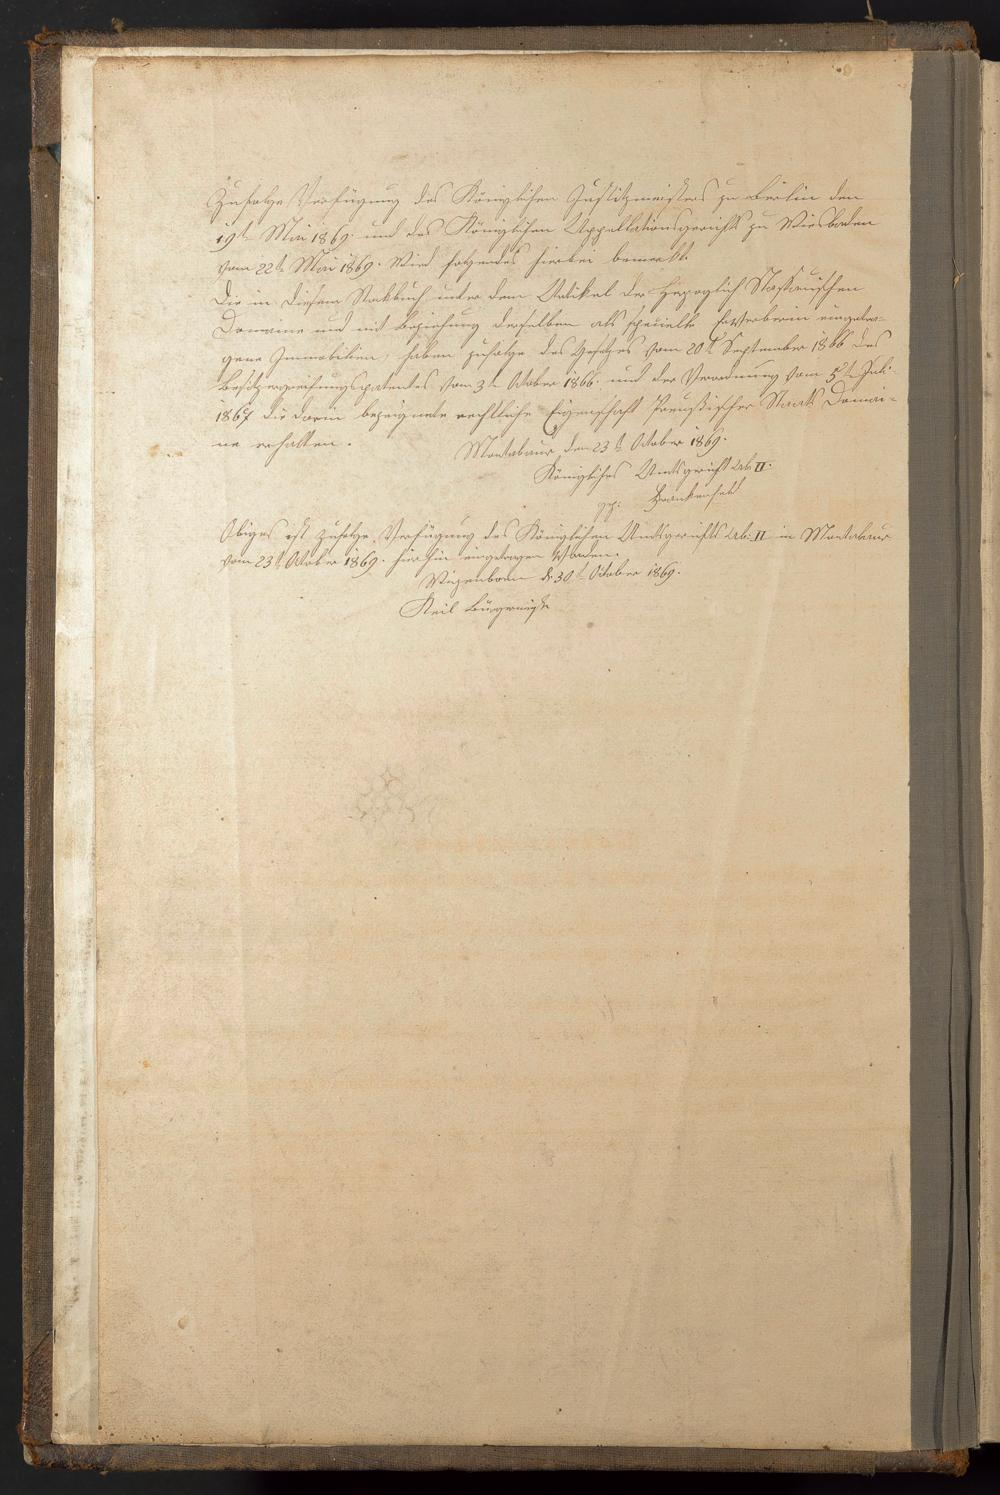 Zufolge Verfügung des Königlichen Justitzmeisters zu Berlin den
19t Mai 1869. und des Königlichen Appellationsgerichts zu Wiesbaden
vom 22t Mai 1869. Wird folgendes hierbei bemerkt.
Die in diesem Stokbuch unter dem Artikel der Herzoglich Nassauischen
Domaine und mit Beziehung derselben als specielle Erwerberin eingetra-
gene Immobilien, haben zufolge des Gesetzes vom 20t September 1866 des
Besitzergreifungspatentes vom 3t October 1866. und der Verordnung vom 5t Juli
1867 die darin bezeignete rechtliche Eigenschaft Preußischer Staats Domai-
ne erhalten.
Montabaur den 23t October 1869.
Königliches Amtsgericht Ab. II.
gz.
Obiges ist zufolge Verfügung des Königlichen Amtsgerichts Ab. II in Montabaur
vom 23t October 1869. hierhin eingetragen Worden.
d. 30t October 1869.
Keil Bürgermstr